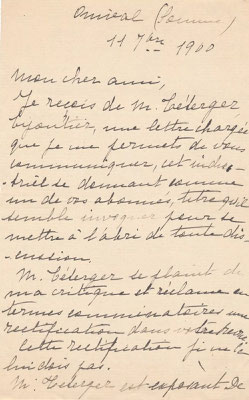 (Somme)
11 7bre 1900
Mon cher ami,
Je reçois de M. Téterger
bijoutier, une lettre chargée
que je me permets de vous
communiquer, cet indus-
-triel se donnant comme
un de vos abonnés, titre qu'il
semble invoquer pour se
mettre à l'abri de toute dis-
-cussion.
M. Téterger se plaint de
ma critique et réclame en
termes comminatoires une
rectification dans votre
cette rectification je ne la
lui dois pas.
M. Téterger est exposant de